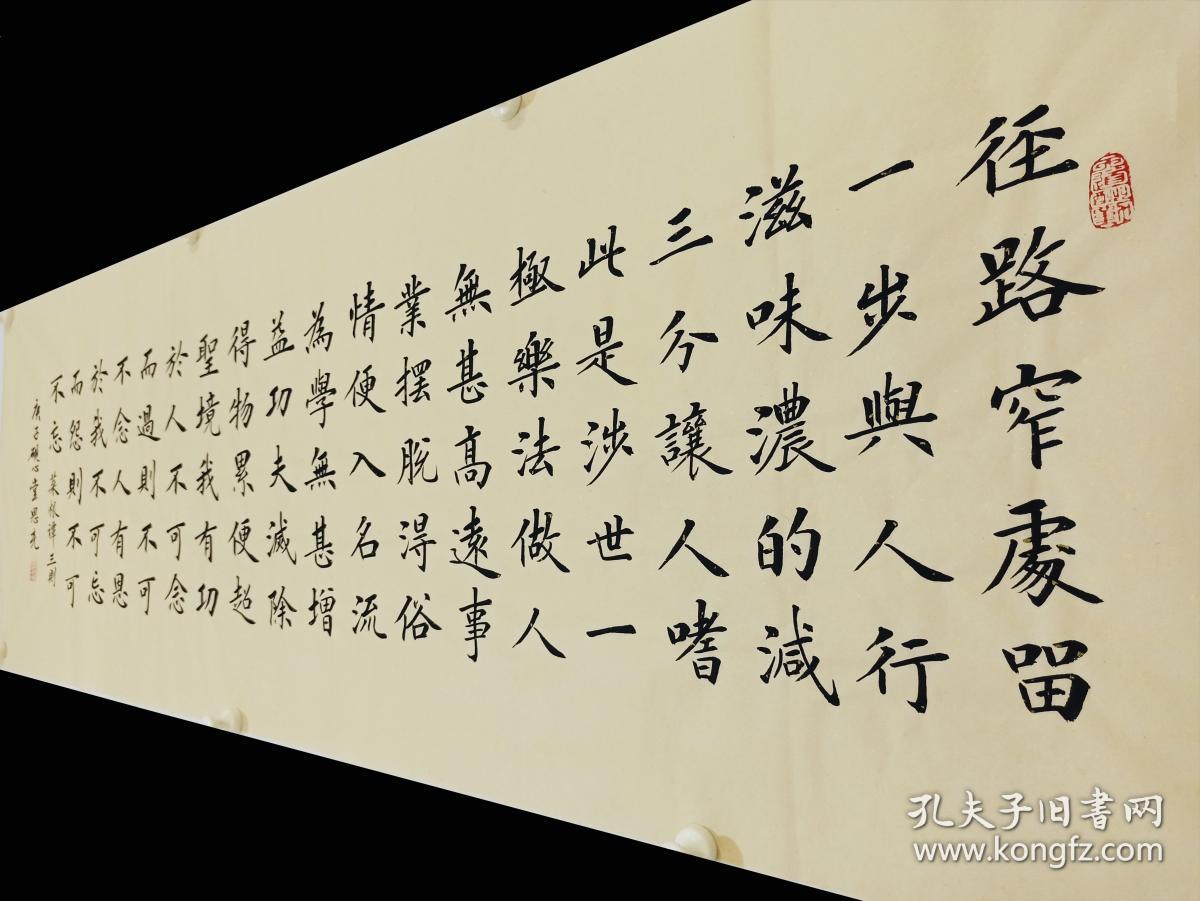 径路窄處留
一步與人行
滋味濃的減
三分讓人嗜
此是涉世一
極樂法做人
無甚髙遠事
業擺脫得俗
情便入名流
為學無甚增
益功夫減除
得物累便超
聖境我有功
於人不可念
而過則不可
不念人有恩
於我不可忘
而怨則不可
不忘 菜根譚三則
庚子硯心堂
孔夫子旧书网
www.kongfz.com